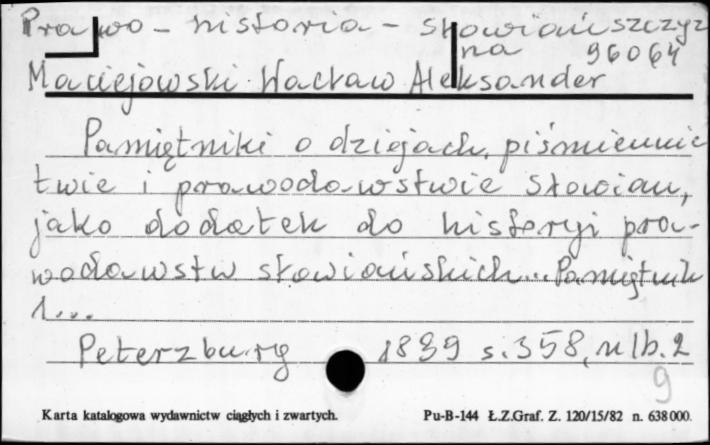 Prawo - historia - słowiańszczyz
na 96064
Maciejowski Wacław Aleksander
Pamiętniki o dziejach, piśmiennic
twie i prawodawstwie Słowian,
jako dodatek do historyi pra-
wodawstw słowiańskich... Pamiętnik
1...
Peterzburg 1839 s. 358, nlb. 2
9
Karta katalogowa wydawnictw ciągłych i zwartych. Pu-B-144 Ł.Z.Graf. Z. 120/15/82 n. 638 000.